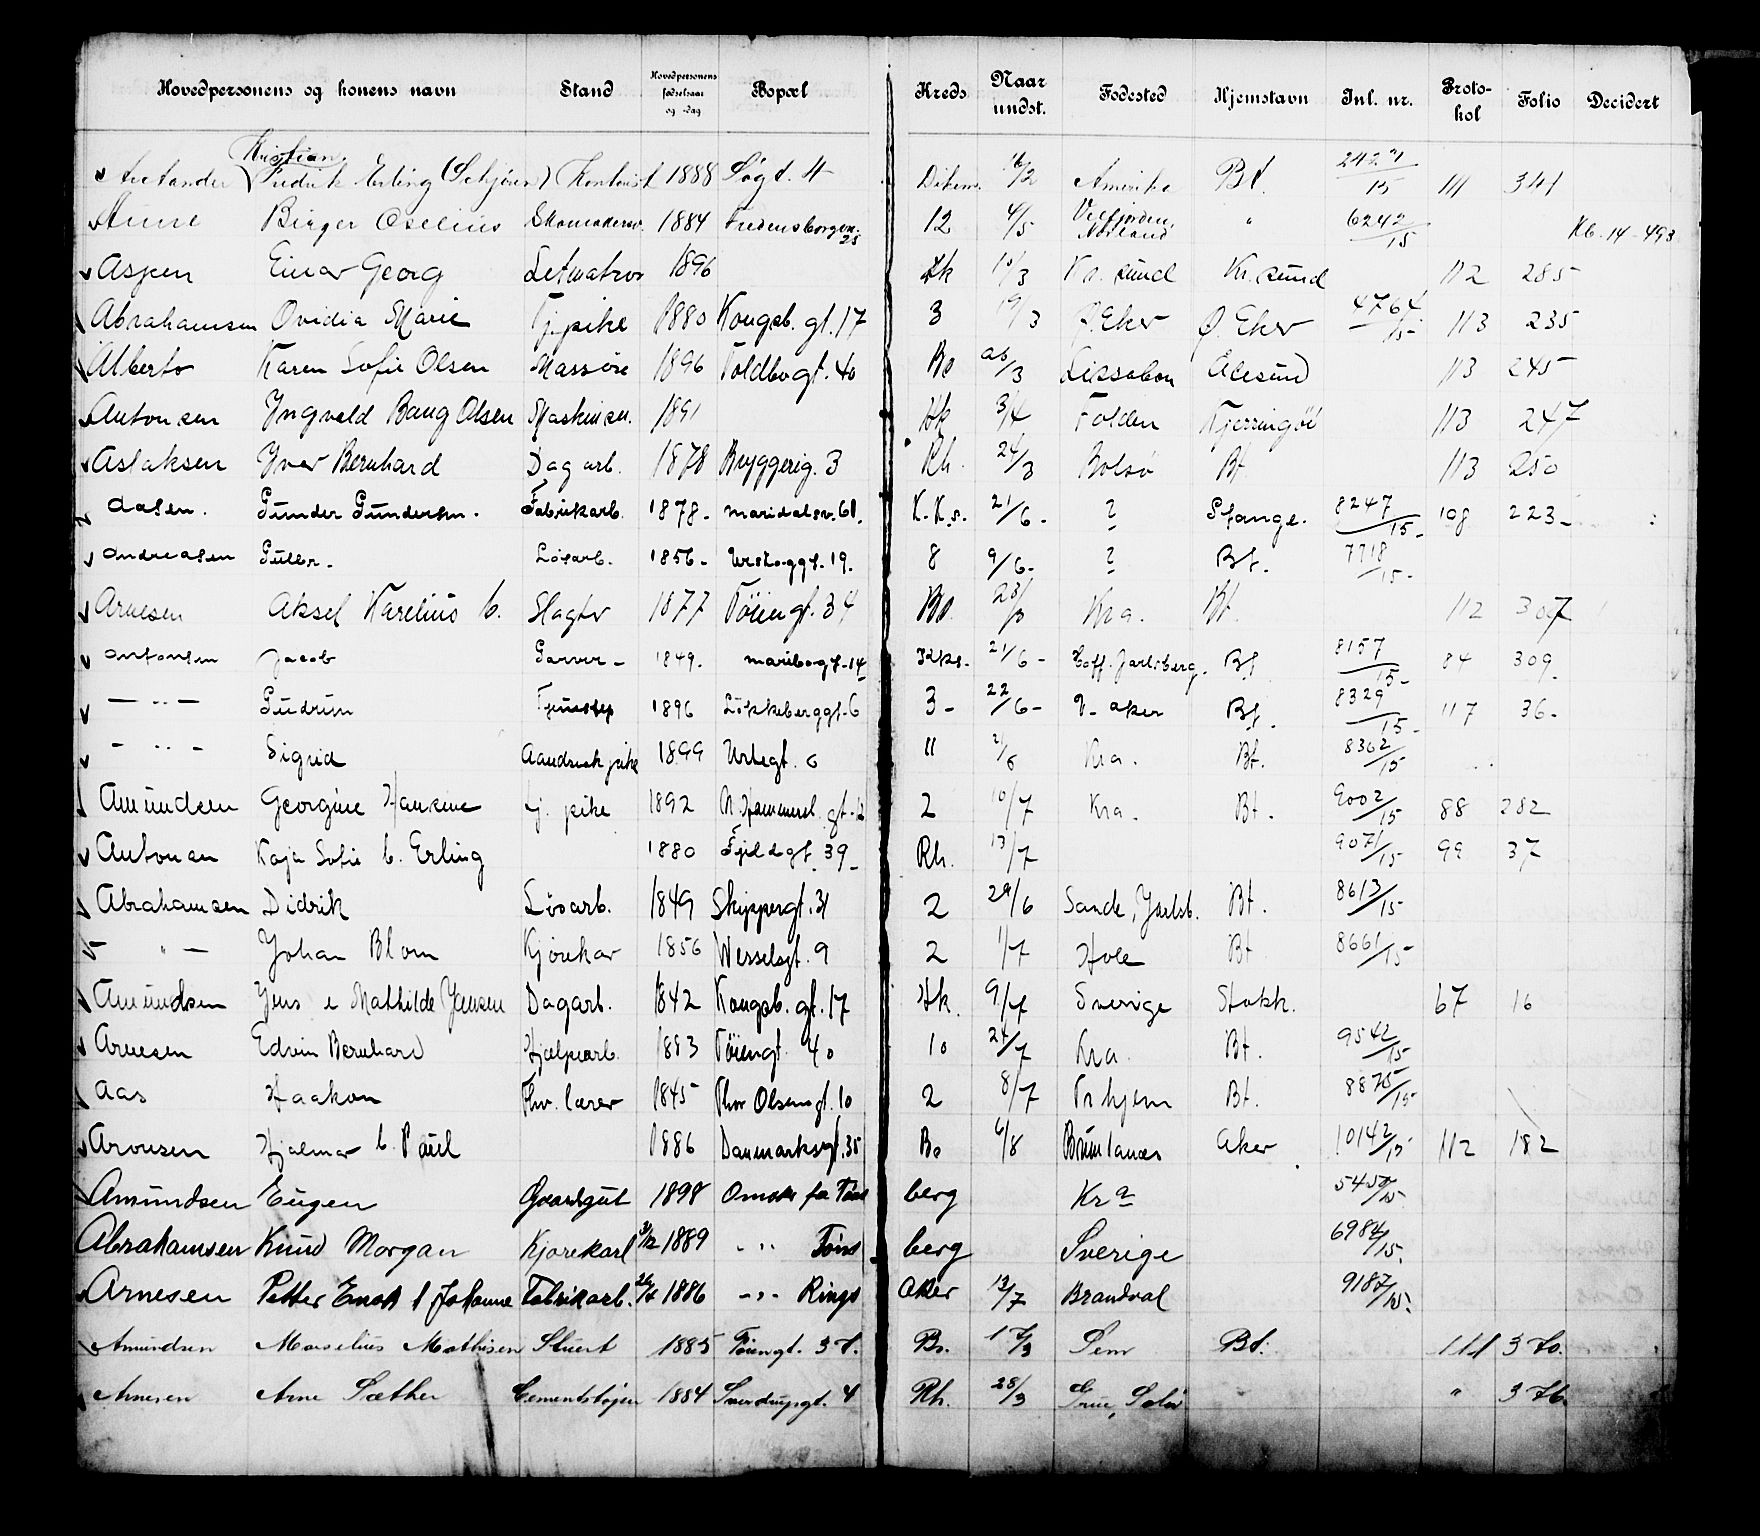 Hovedpersonens og konens navn Stand Hovedpersonens fødselsaar og -dag Bopæl Kreds Naar undst. Fødested Hjemstavn Inl. nr. Protokol Folio Decidert
Kristian
Fredrik Erling (Schjøren) Kontorist 1888 Søgt. 4 Dikem. 16/2 Amerika Bt. 2427/15 111 341
Aune Birger Oselius Skomakersv. 1884 Fredensborgvn. 28 12 4/5 Velfjorden, Norland " 6242/15 Kb. 14-493
Aspen Einar Georg Letmatros 1896 Hk 10/3 Kr. sund Kr. sund 112 285
Abrahamsen Ovidia Marie Tj. pike 1880 Kongsb. gt. 17 3 19/3 Ø. Eker Ø. Eker 4764/15 113 235
Alberto Karen Sofie Olsen Massøse 1896 Toldbogt. 40 Bo 26/3 Lissabon Ålesund 113 245
Antonsen Yngvald Baug Olsen Maskinsn. 1891 Hk 3/4 Folden Kjerringöe 113 247
Aslaksen Yver Bernhard Dagarb. 1878 Bryggerig. 3 Rh. 24/3 Bolsø Bt. 113 250
Aasen. Gunder Gundersen. Fabrikarb. 1878- maridalsv. 61. K.K.s. 21/6- ? Stange. 8247/15- 108 223-
Andreasen Løsarb. 1856- gt. 19. 8 9/6- ? Bt. 7718/15-
Arnesen Aksel Karelius b. Slagter 1877 Töiengt. 34 Bo. 28/ Kra. Bt. 112 307
Antonsen Jacob Garver- 1849. maribogt-14 Kks- 21/6- Hoff. Jarlsberg. Bt 8157/15- 84 309
— " — Gudrun 1896 Løkkeberggt-6 3- 22/6- V- aker Bt. 8329/15- 117 36-
- " - Sigrid Aandssvak pike 1899 Urtegt. 6 11 2/6 Kra. Bt. 8362/15
Amundsen Georgine Hansine tj. pike 1892 N. Hammersb. gt. 12 2 10/7 Kra. Bt. 9002/15 88 282
Antonsen Kaja Sofie b. Erling 1880 Fjeldgt. 39- Rh. 13/7 9071/15 99 37
Abrahamsen Didrik Løsarb. 1849 Skippergt. 31 2 29/6 Sande, Jarlsb. Bt. 8613/15
" — Johan Blom Kjørekar 1856 Wesselsgt. 9 2 1/7 Hole Bt 8661/15
Amundsen Jens e Mathilde Jensen Dagarb. 1842 Kongsb. gt. 17 Hk. 9/7 Sverige Stokk. 67 16
Arnesen Edvin Bernhard Hjælpearb. 1893 Töiengt 40 10 24/7 Kra. Bt. 9542/15
Aas Haakon Thv. lærer 1845 Thor Olsensgt. 10 2 8/7 Trhjem Bt. 8875/15
Aronsen Hjalmar b. Paul 1886 Danmarksgt. 35 Bo 6/8 Brunlanæs Aker 10142/15 112 182
Amundsen Eugen Gaardgut 1898 Omsk fr Tøns berg Kra 5457/15
Abrahamsen Knud Morgan Kjørekarl 3/12 1889 - " Tøns berg Sverige 6984/15.
Arnesen Petter Enok f Johanne Fabrikarb. 26/4 1886 - " - Rings aker 13/7 Brandval 9187/15.
Amundsen Marselius Mathisen Stuert 1885 Töiengt. 37. Bo. 17/3 Sem Bt. 111 370.
Arnesen Arne Sæther Cementstøper 1884 Sverdrupgt. 4 Rh. 28/3 Grue, Solør " " 376.